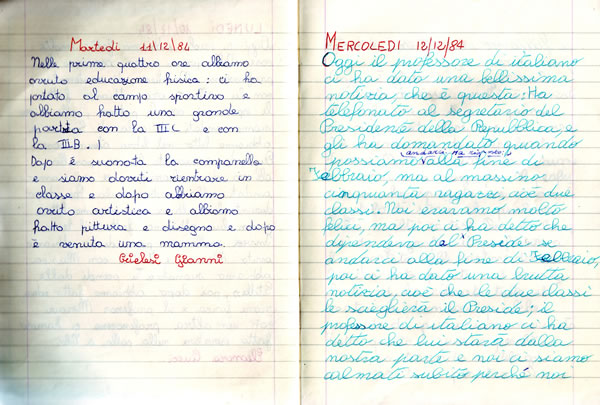 Martedì 11/12/84
Nelle prime quattro ore abbiamo
avuto educazione fisica: ci ha
portato al campo sportivo e
abbiamo fatto una grande
partita con la III C e con
la III B.
Dopo è suonata la campanella
e siamo dovuti rientrare in
classe e dopo abbiamo
avuto artistica e abbiamo
fatto pittura e disegno e dopo
è venuta una mamma.
Gianni
MERCOLEDI 12/12/84
Oggi il professore di italiano
ci ha dato una bellissima
notizia che è questa: Ha
telefonato al segretario del
Presidente della Repubblica, e
gli ha domandato quando
possiamo andare alla fine di
Febbraio, ma al massimo
cinquanta ragazzi, cioè due
classi. Noi eravamo molto
felici, ma poi ci ha detto che
dipendeva dal Preside se
andarci alla fine di Febbraio,
poi ci ha dato una brutta
notizia, cioè che le due classi
le sceglierà il Preside; il
professore di italiano ci ha
detto che lui starà dalla
nostra parte e noi ci siamo
calmati subito perché noi